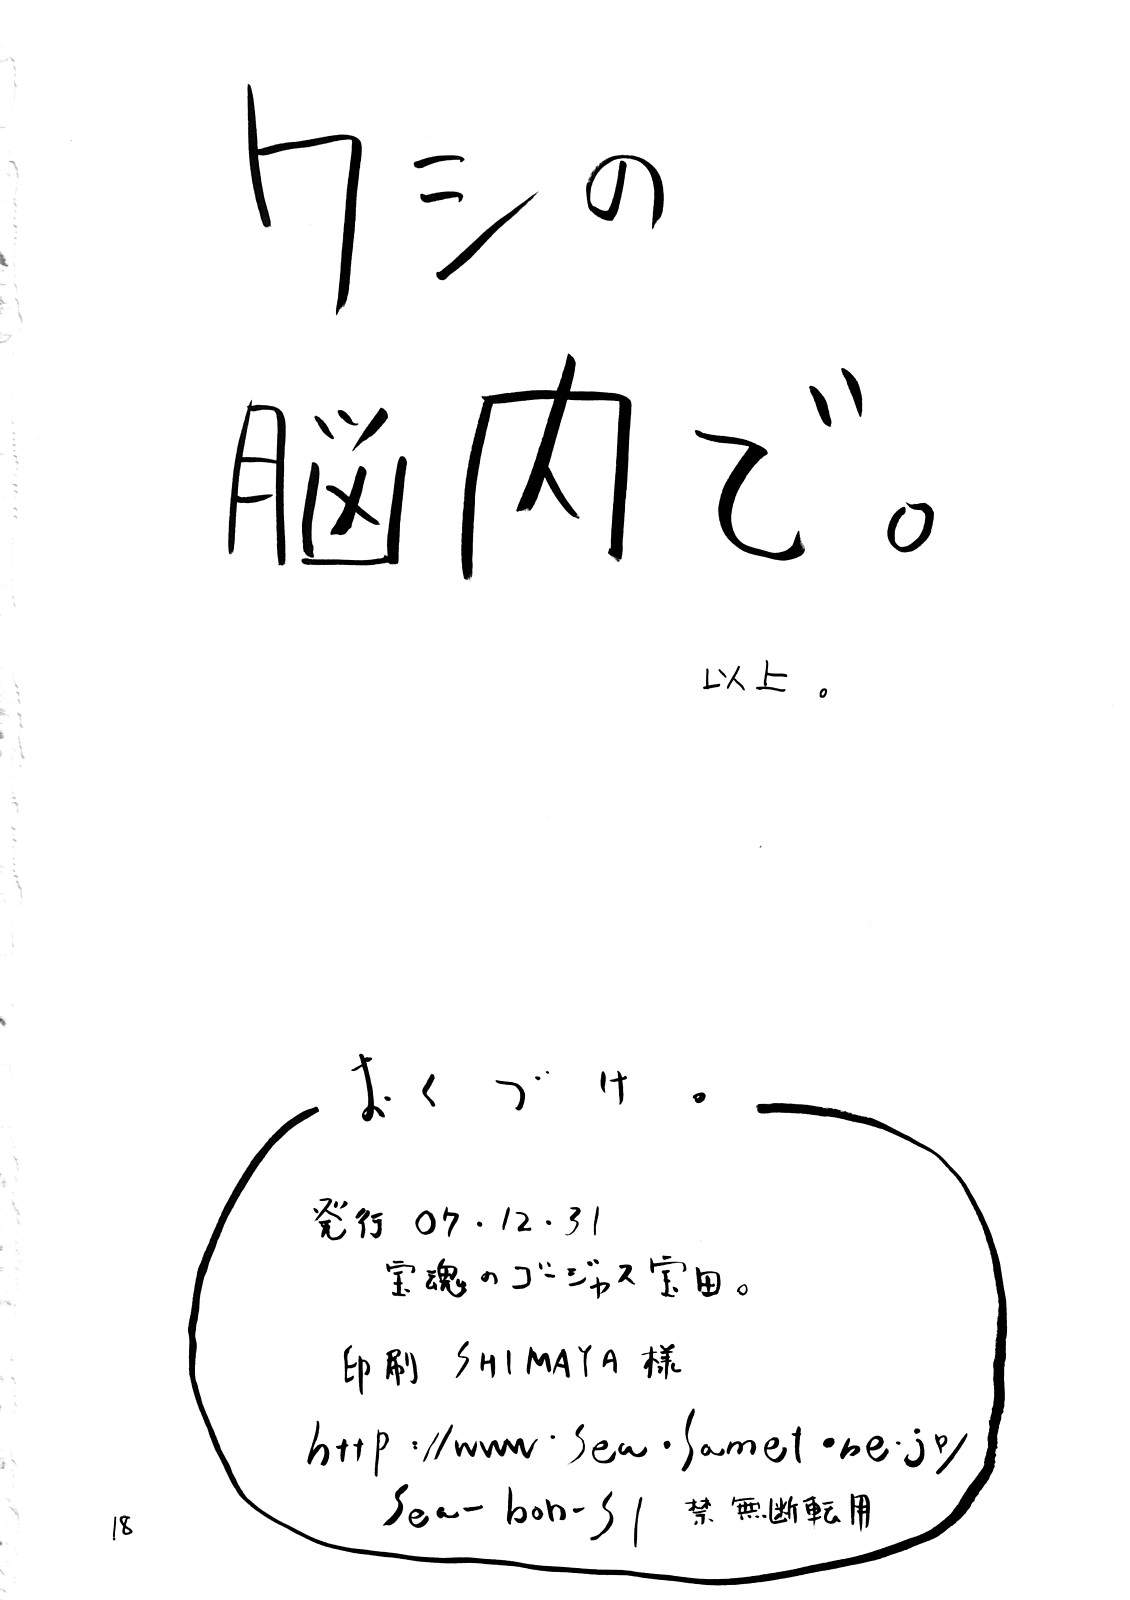 ワシの
脳内で。
以上。
おくづけ。
発行 07.12.31
宝魂のゴージャス宝田。
印刷 SHIMAYA様
http://www.sea.samet.ne.jp/
sea-bon-sl 禁無断転用
18